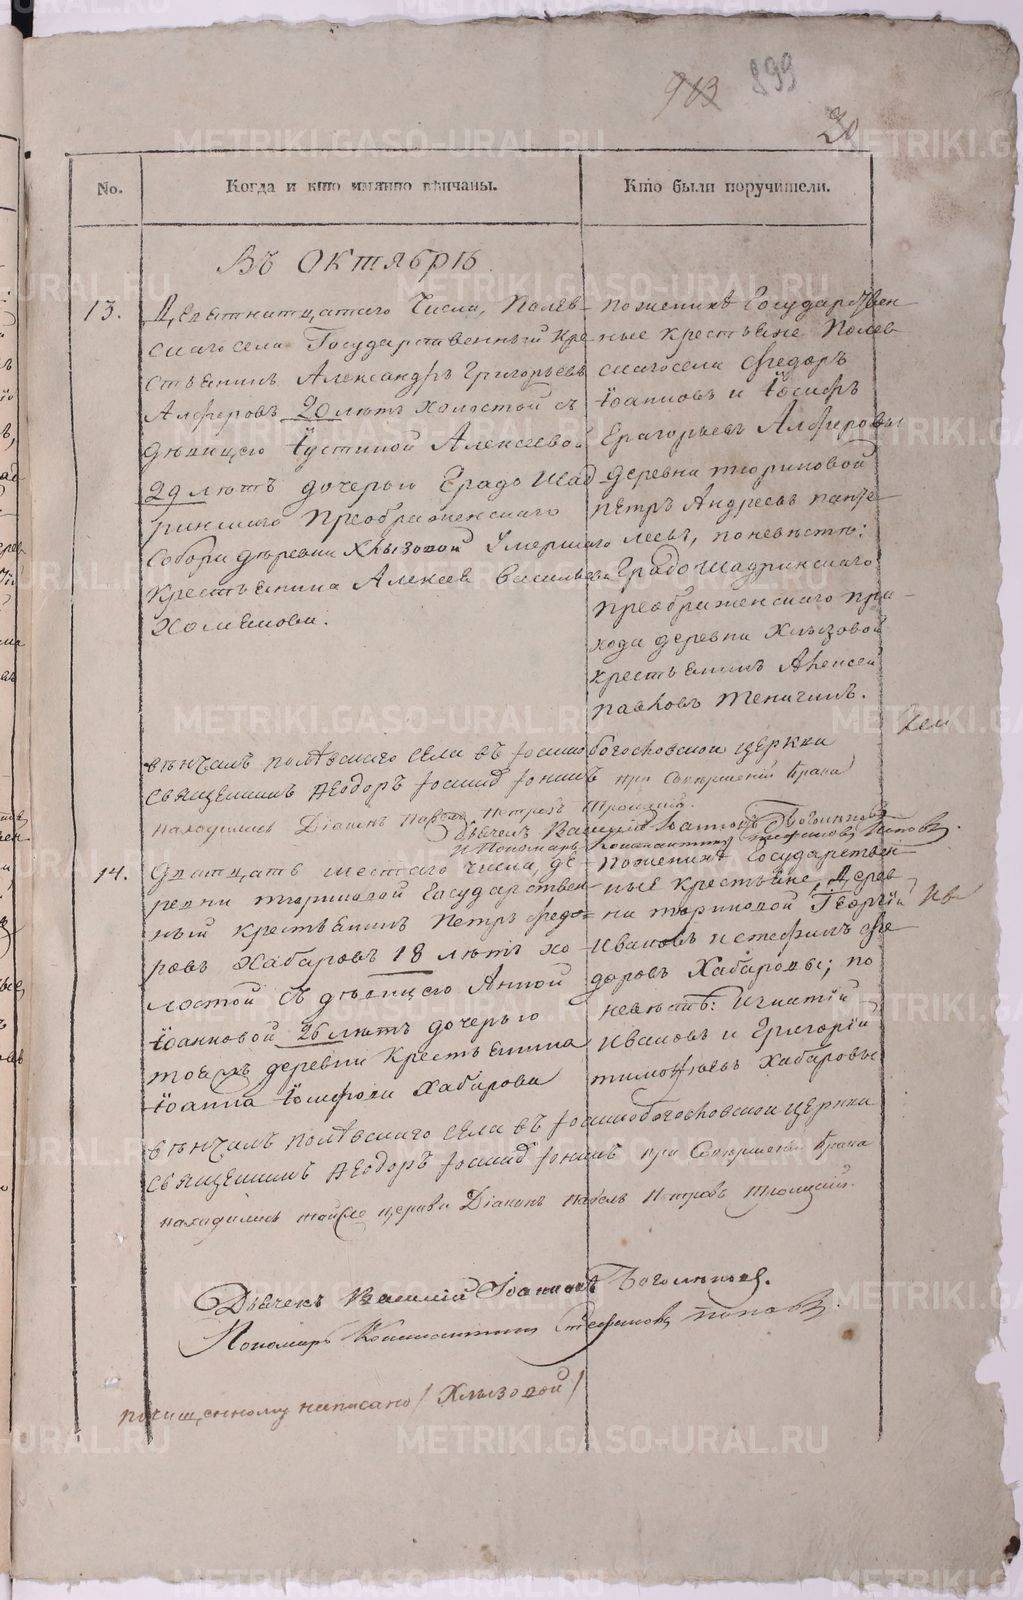 913 899
20
No.
Когда и кто имянно вѣнчаны.
Кто были поручители.
Въ Октябрѣ
13.
Девятнатцатаго Числа, Полев-
скаго села Государственный Кре-
стьянинъ Александръ Григорьевъ
Алферовъ 20 лѣтъ холостой съ
дѣвицею Iустиной Алексеевой
29 лѣтъ дочерью Градо Шад-
ринскаго Преображенскаго
Собора деревни Хлызовой Умершаго
Крестьянина Алексея Васильева
Хоменова.
по женихѣ Государствен
ные крестьяне Полев
скаго села Федоръ
Iоанновъ и Iосифъ
Григорьевъ Алферовы
деревни тюриковой
Петръ Андреевъ Панте
леевъ, по невѣстѣ:
Градо Шадринскаго
Преображенскаго при-
хода деревни Хлызовой
крестьянинъ Алексей
Павловъ Теничинъ.
вѣнчалъ полѣвскаго села въ Iоаннобогословской церкви
Священникъ Ѳеодоръ при Совершеніи брака
находились Дiаконъ Павелъ Петровъ Троицкiй.
Дьячекъ Василiй Iоанновъ Боголеповъ
и Пономарь Константинъ Стефановъ Поповъ.
14.
Дватцать шестаго Числа, де-
ревни тюриковой Государствен-
ный крестьянинъ Петръ Федо-
ровъ Хабаровъ 18 лѣтъ хо
лостой съ дѣвицею Анной
Iоанновой 26 лѣтъ дочерью
тоя жъ деревни Крестьянина
Iоанна Хабарова
По женихѣ Государствен
ные крестьяне, Дерев
ни тюриковой Георгiй
Ивановъ и Стефанъ Фе
доровъ Хабаровы; по
невѣстѣ: Игнатiй
Ивановъ и Григорiй
тимоѳеевъ Хабаровы
вѣнчалъ полѣвскаго села въ Iоаннобогословской церкви
Священникъ Ѳеодоръ при Совершенiи брака
находились тойже церкви Дiаконъ Павелъ Петровъ Троицкiй.
Дьячекъ Василiй Iоанновъ Боголеповъ.
Пономарь Константинъ Стефановъ Поповъ.
по чищенному написано / Хлызовой /
METRIKI.GASO-URAL.RU